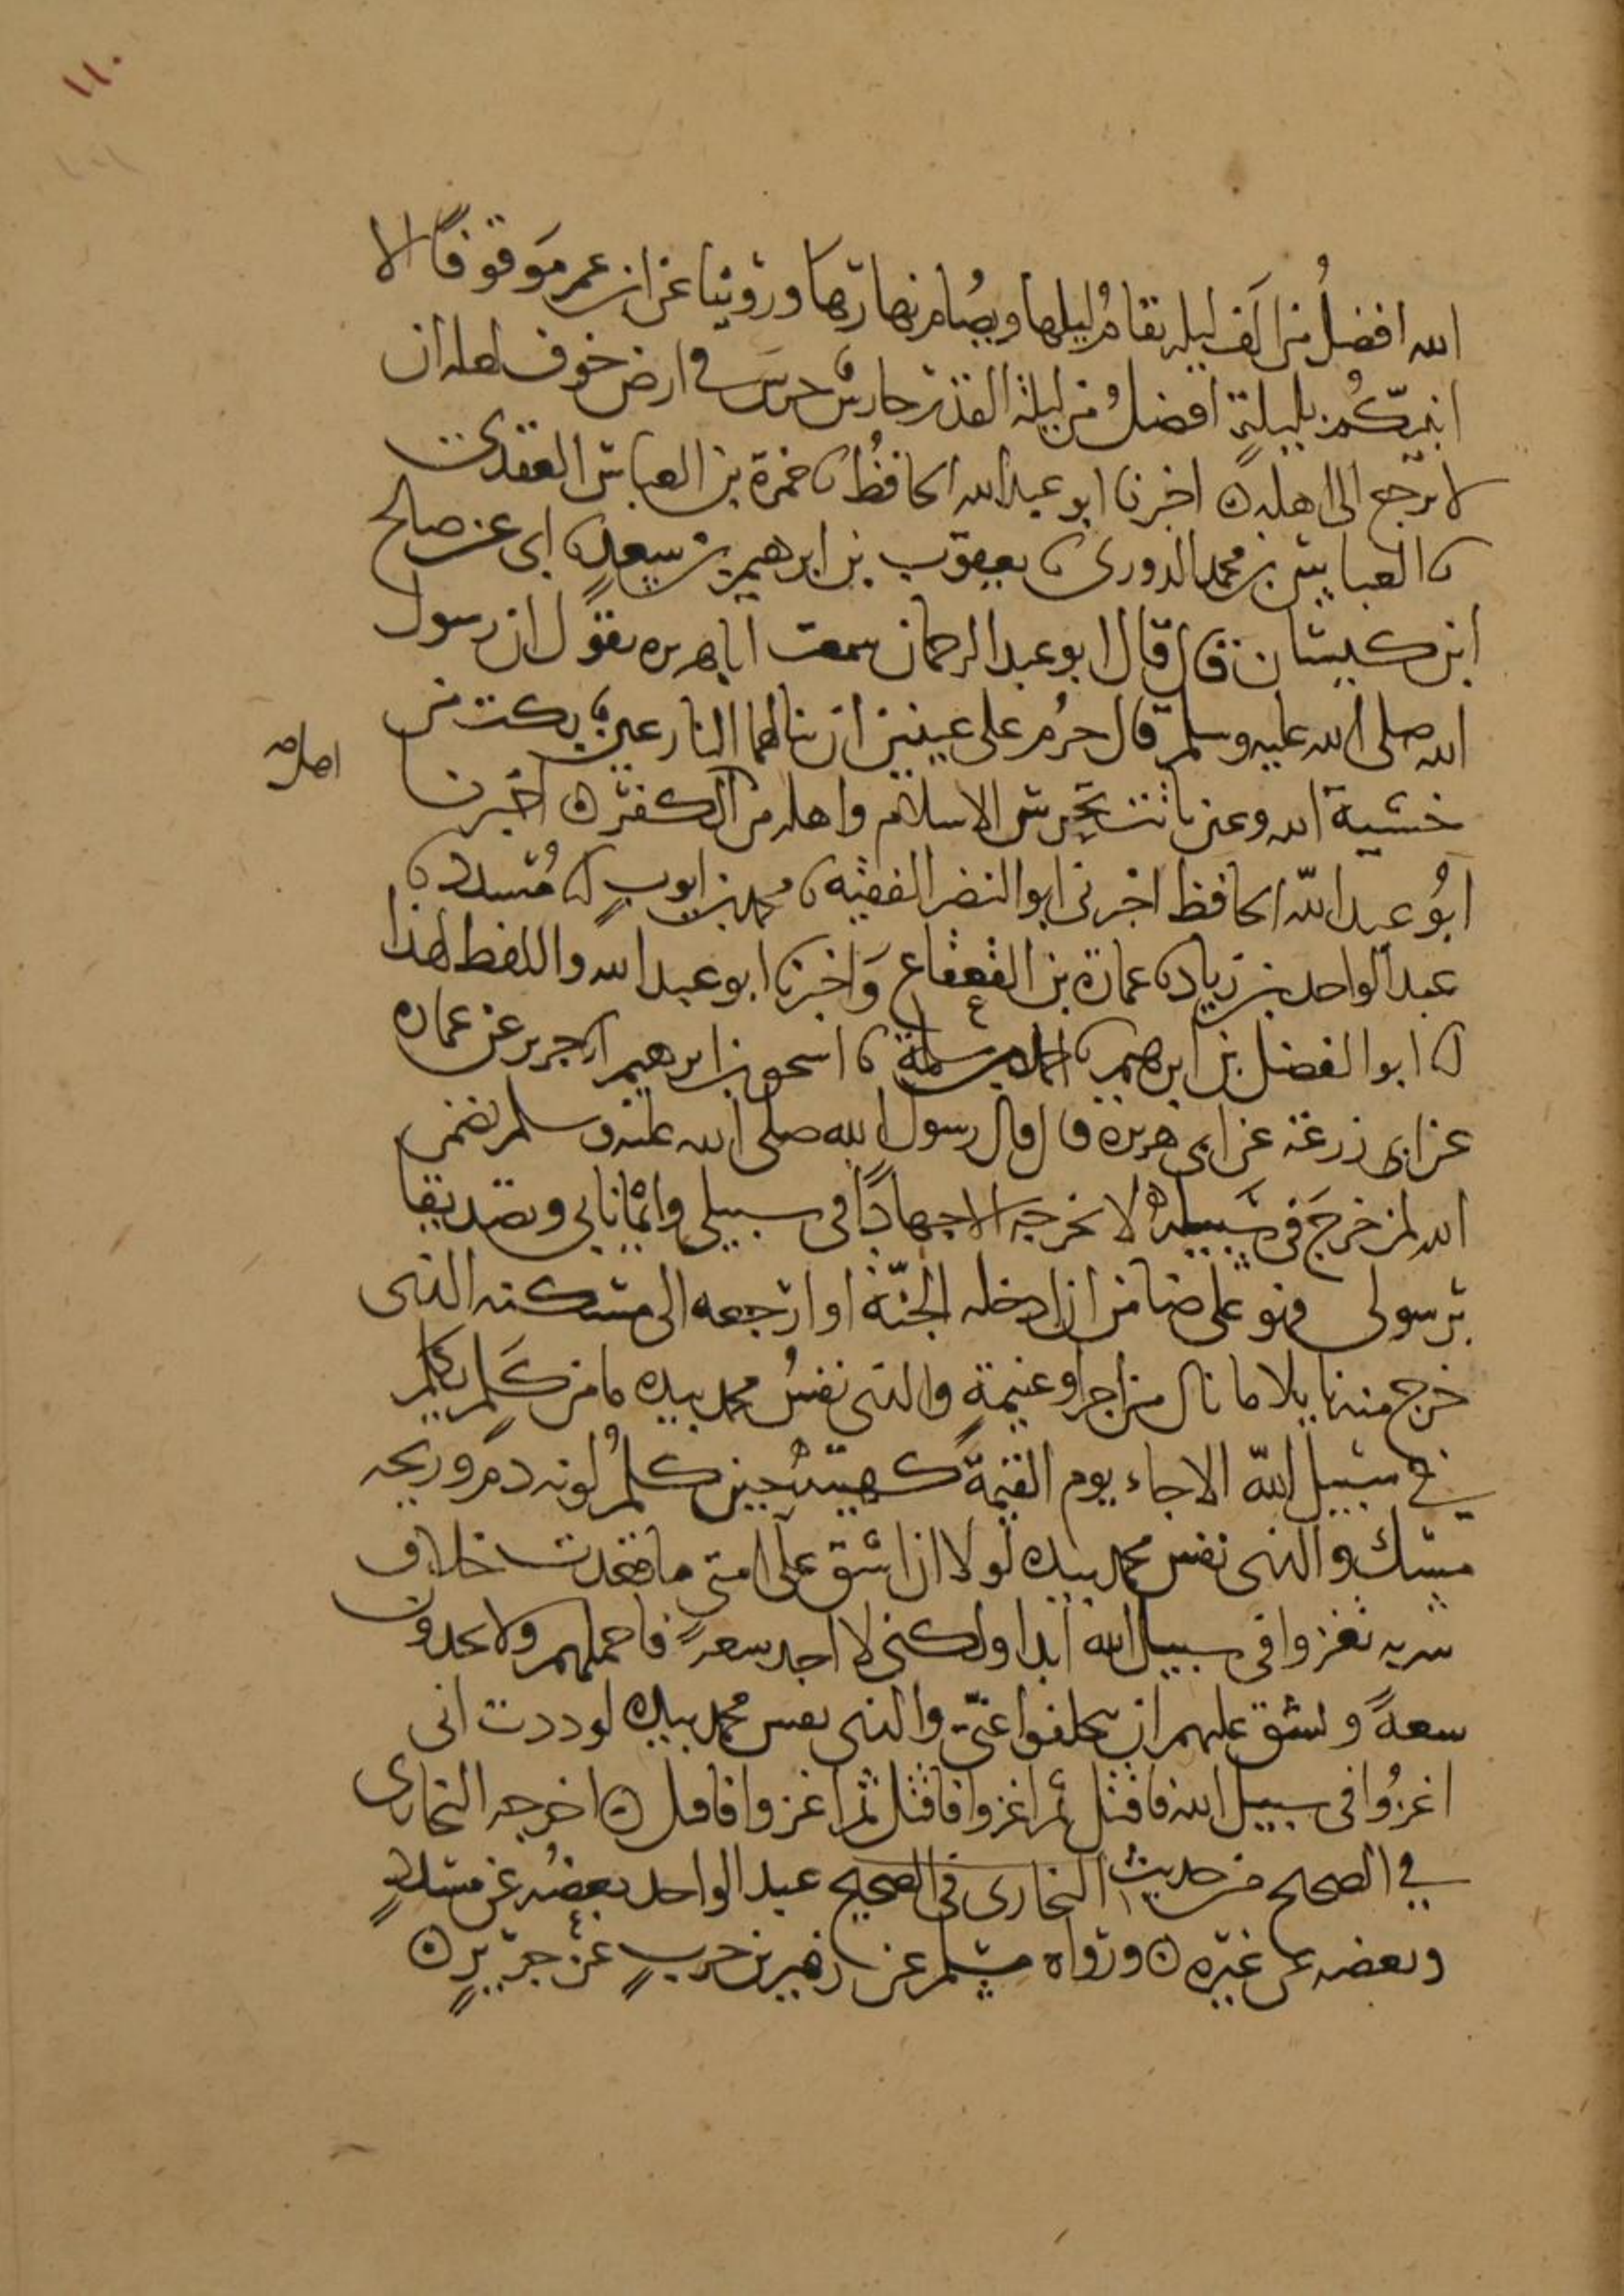 ١١٠
الله افضلُ من الَف ليله يقامُ ليلها ويصُام نهارها وروينا عن ابن عمر مَوقوفًا الا
انبّئكُم بليلةٍ افضلُ من ليلة القدر حارسٌ حرسَ في ارض خوف لعله ان
لا يرجع الى اهله ۞ اخبرنا ابو عبد الله الحافظُ نا حمزة بن العباس العقبى
نا العباس بن محمد الدورى نا يعقوب بن ابرهيم بن سعدٍ نا ابى عن صالح
ابن كيسان قال قال ابو عبد الرحمان سمعت ابا هريره يقول ان رسول
الله صلى الله عليه وسلم قال حرُم على عينين ان تنالهما النار عينٌ بكت من
خشية الله وعين باتت تحرس الاسلام واهله من الكفر ۞ اخبرنا
ابُو عبد الله الحافظ اخبرنى ابو النضر الفقيه نا محمد بن ايوبٍ نا مُسدد نا
عبد الواحد بن زياد نا عمارة بن القعقاع وَاخبرنا ابو عبد الله واللفظ لهذا
نا ابو الفضل بن ابرهيم نا احمد بن سلمة نا اسحق بن ابرهيم نا جرير عن عماره
عن ابى زرعة عن ابى هريرة قال قال رسول الله صلى الله عليه وسلم تضمن
الله لمن خرجَ فى سَبيله لا يخرجه الا جهادًا فى سبيلى وايمانا بى وتصديقا
برسولى فهو على ضامن ان ادخله الجنّة او ارجعه الى مسكنه الذى
خرج منه نايلا ما نال من اجر او غنيمةٍ والذى نفسُ محمد بيده ما من كَلمٍ يكلم
في سبيل اللهّ الا جاء يوم القيمة كهيئته حين كلمُ لونه دم وريحه
مسك والذى نفس محمد بيده لولا ان اشق على امتي ما قعدت خلاف
سريه تغزوا فى سبيل الله ابدا ولكنى لا اجد سعةً فاحملهم ولا يجدون
سعةً ويشق عليهم ان يتخلفوا عنّي والذى نفس محمد بيده لوددت انى
اغزُوا فى سبيل الله فاقتل ثم اغزوا فاقتل ثم اغزوا فاقتل ۞ اخرجه البخارى
في الصحيح من حديث البخارى فى الصحيح عبد الواحد بعضُه عن مسددٍ
وبعضه عن غيره ۞ ورواه مسلم عن زهير بن حربٍ عن جريرٍ ۞